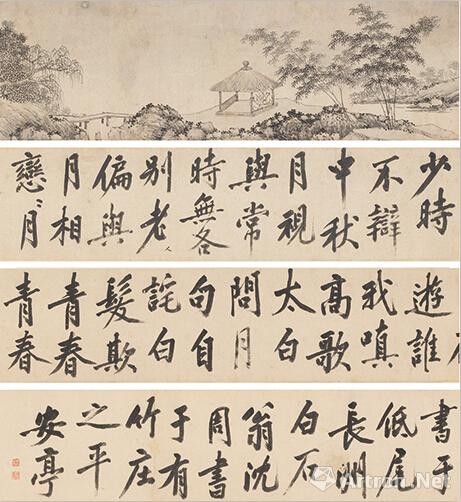 少時
不辯
中秋
月視
與常
時無各
別老人
偏與
月相
戀〻月
遊誰
我嗔
高歌
太白
問月
句自
詫白
髮欺
青春
青春
書于
低屋
長洲
白石
翁沈
周書
于有
竹庄
之平
安亭
Artron.Net